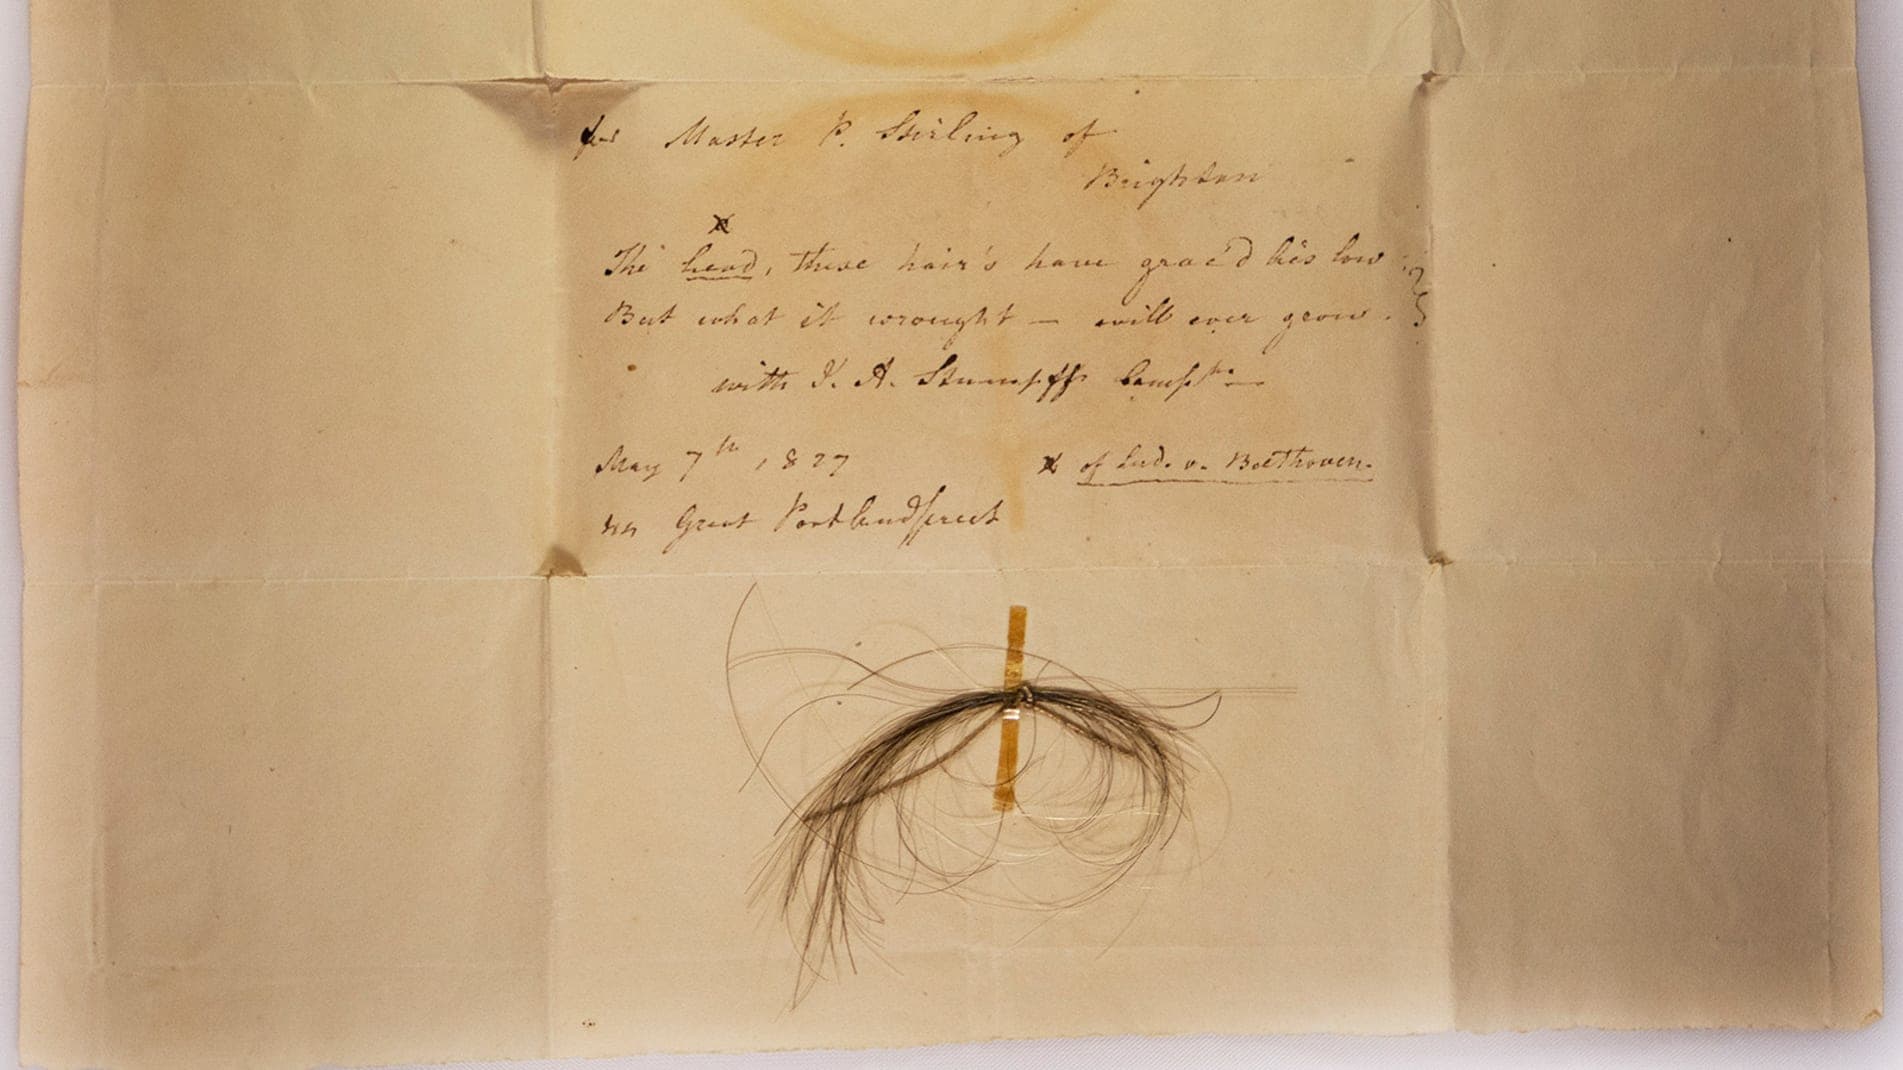 for Master P. Stirling of
Brighton
x
The head, these hair's have grac'd lies low
But what it wrought — will ever grow.
with J. A. Stumpff Compts —
May 7th, 1827
x of Lud. v. Beethoven.
44 Great Portlandstreet